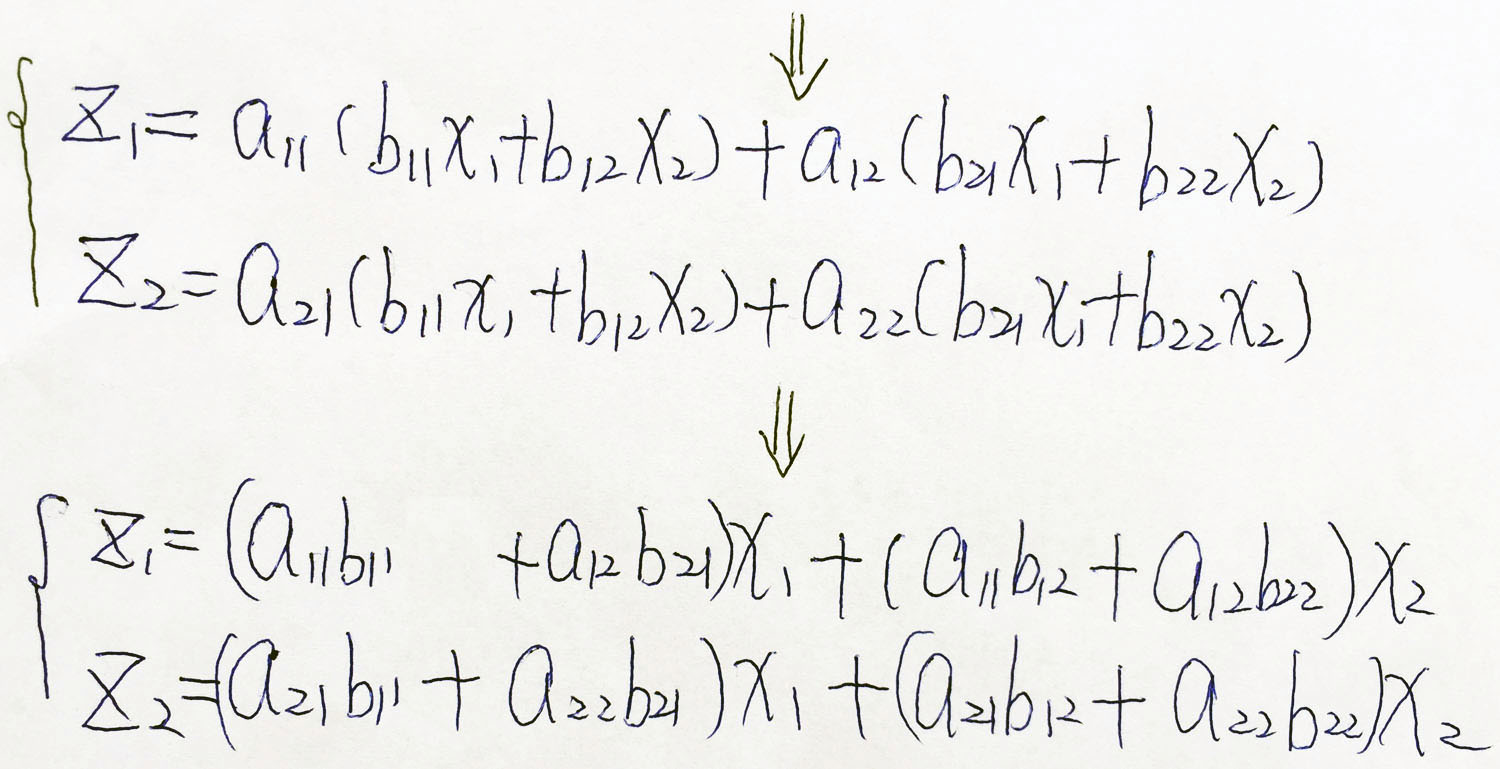 ⇓
z₁ = a₁₁(b₁₁x₁+b₁₂x₂)+a₁₂(b₂₁x₁+b₂₂x₂)
z₂ = a₂₁(b₁₁x₁+b₁₂x₂)+a₂₂(b₂₁x₁+b₂₂x₂)
⇓
z₁ = (a₁₁b₁₁ +a₁₂b₂₁)x₁+(a₁₁b₁₂+a₁₂b₂₂)x₂
z₂ = (a₂₁b₁₁+a₂₂b₂₁)x₁+(a₂₁b₁₂+a₂₂b₂₂)x₂